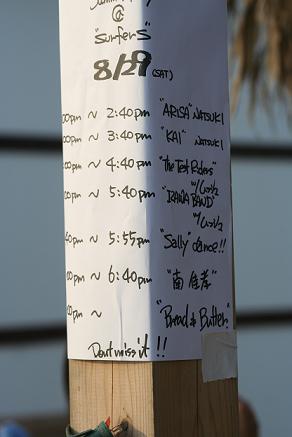 @
"Surfers"
8/29 (SAT)
00pm ~ 2:40pm "ARISA" NATSUKI
00pm ~ 3:40pm "KAI" NATSUKI
00pm ~ 4:40pm "The Test Riders"
00pm ~ 5:40pm BAND"
40pm ~ 5:55pm "Sally" dance!!
00pm ~ 6:40pm "南 佳孝"
00pm ~ "Bread & Butter"
Don't miss it !!